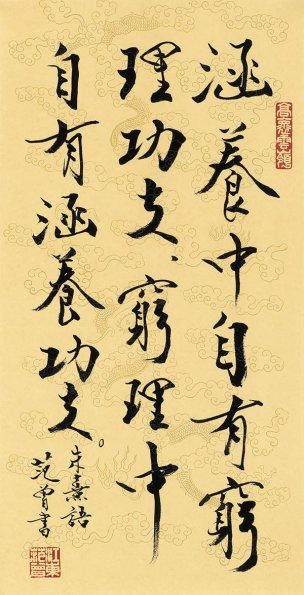 涵養中自有窮
理功夫、窮理中
自有涵養功夫。
朱熹語
范曾書
江東
范曾